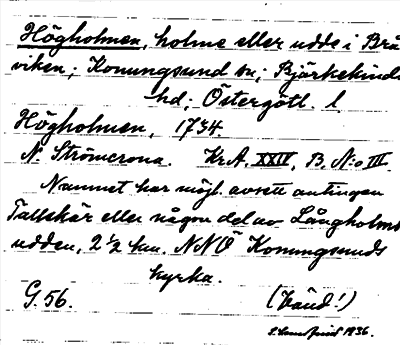 Högholmen, holme eller udde i Brå
viken; Konungsund sn, Bjärkekinds
hd; Östergötl. l.
Högholmen, 1734.
N. Strömcrona. Kr.A. XXIV, B, N:o III.
Namnet har möjl. avsett antingen
Tallskär eller någon del av Långholms
udden, 2 ½ km. NNÖ Konungsunds
kyrka.
G. 56. (Vänd!)
1936.